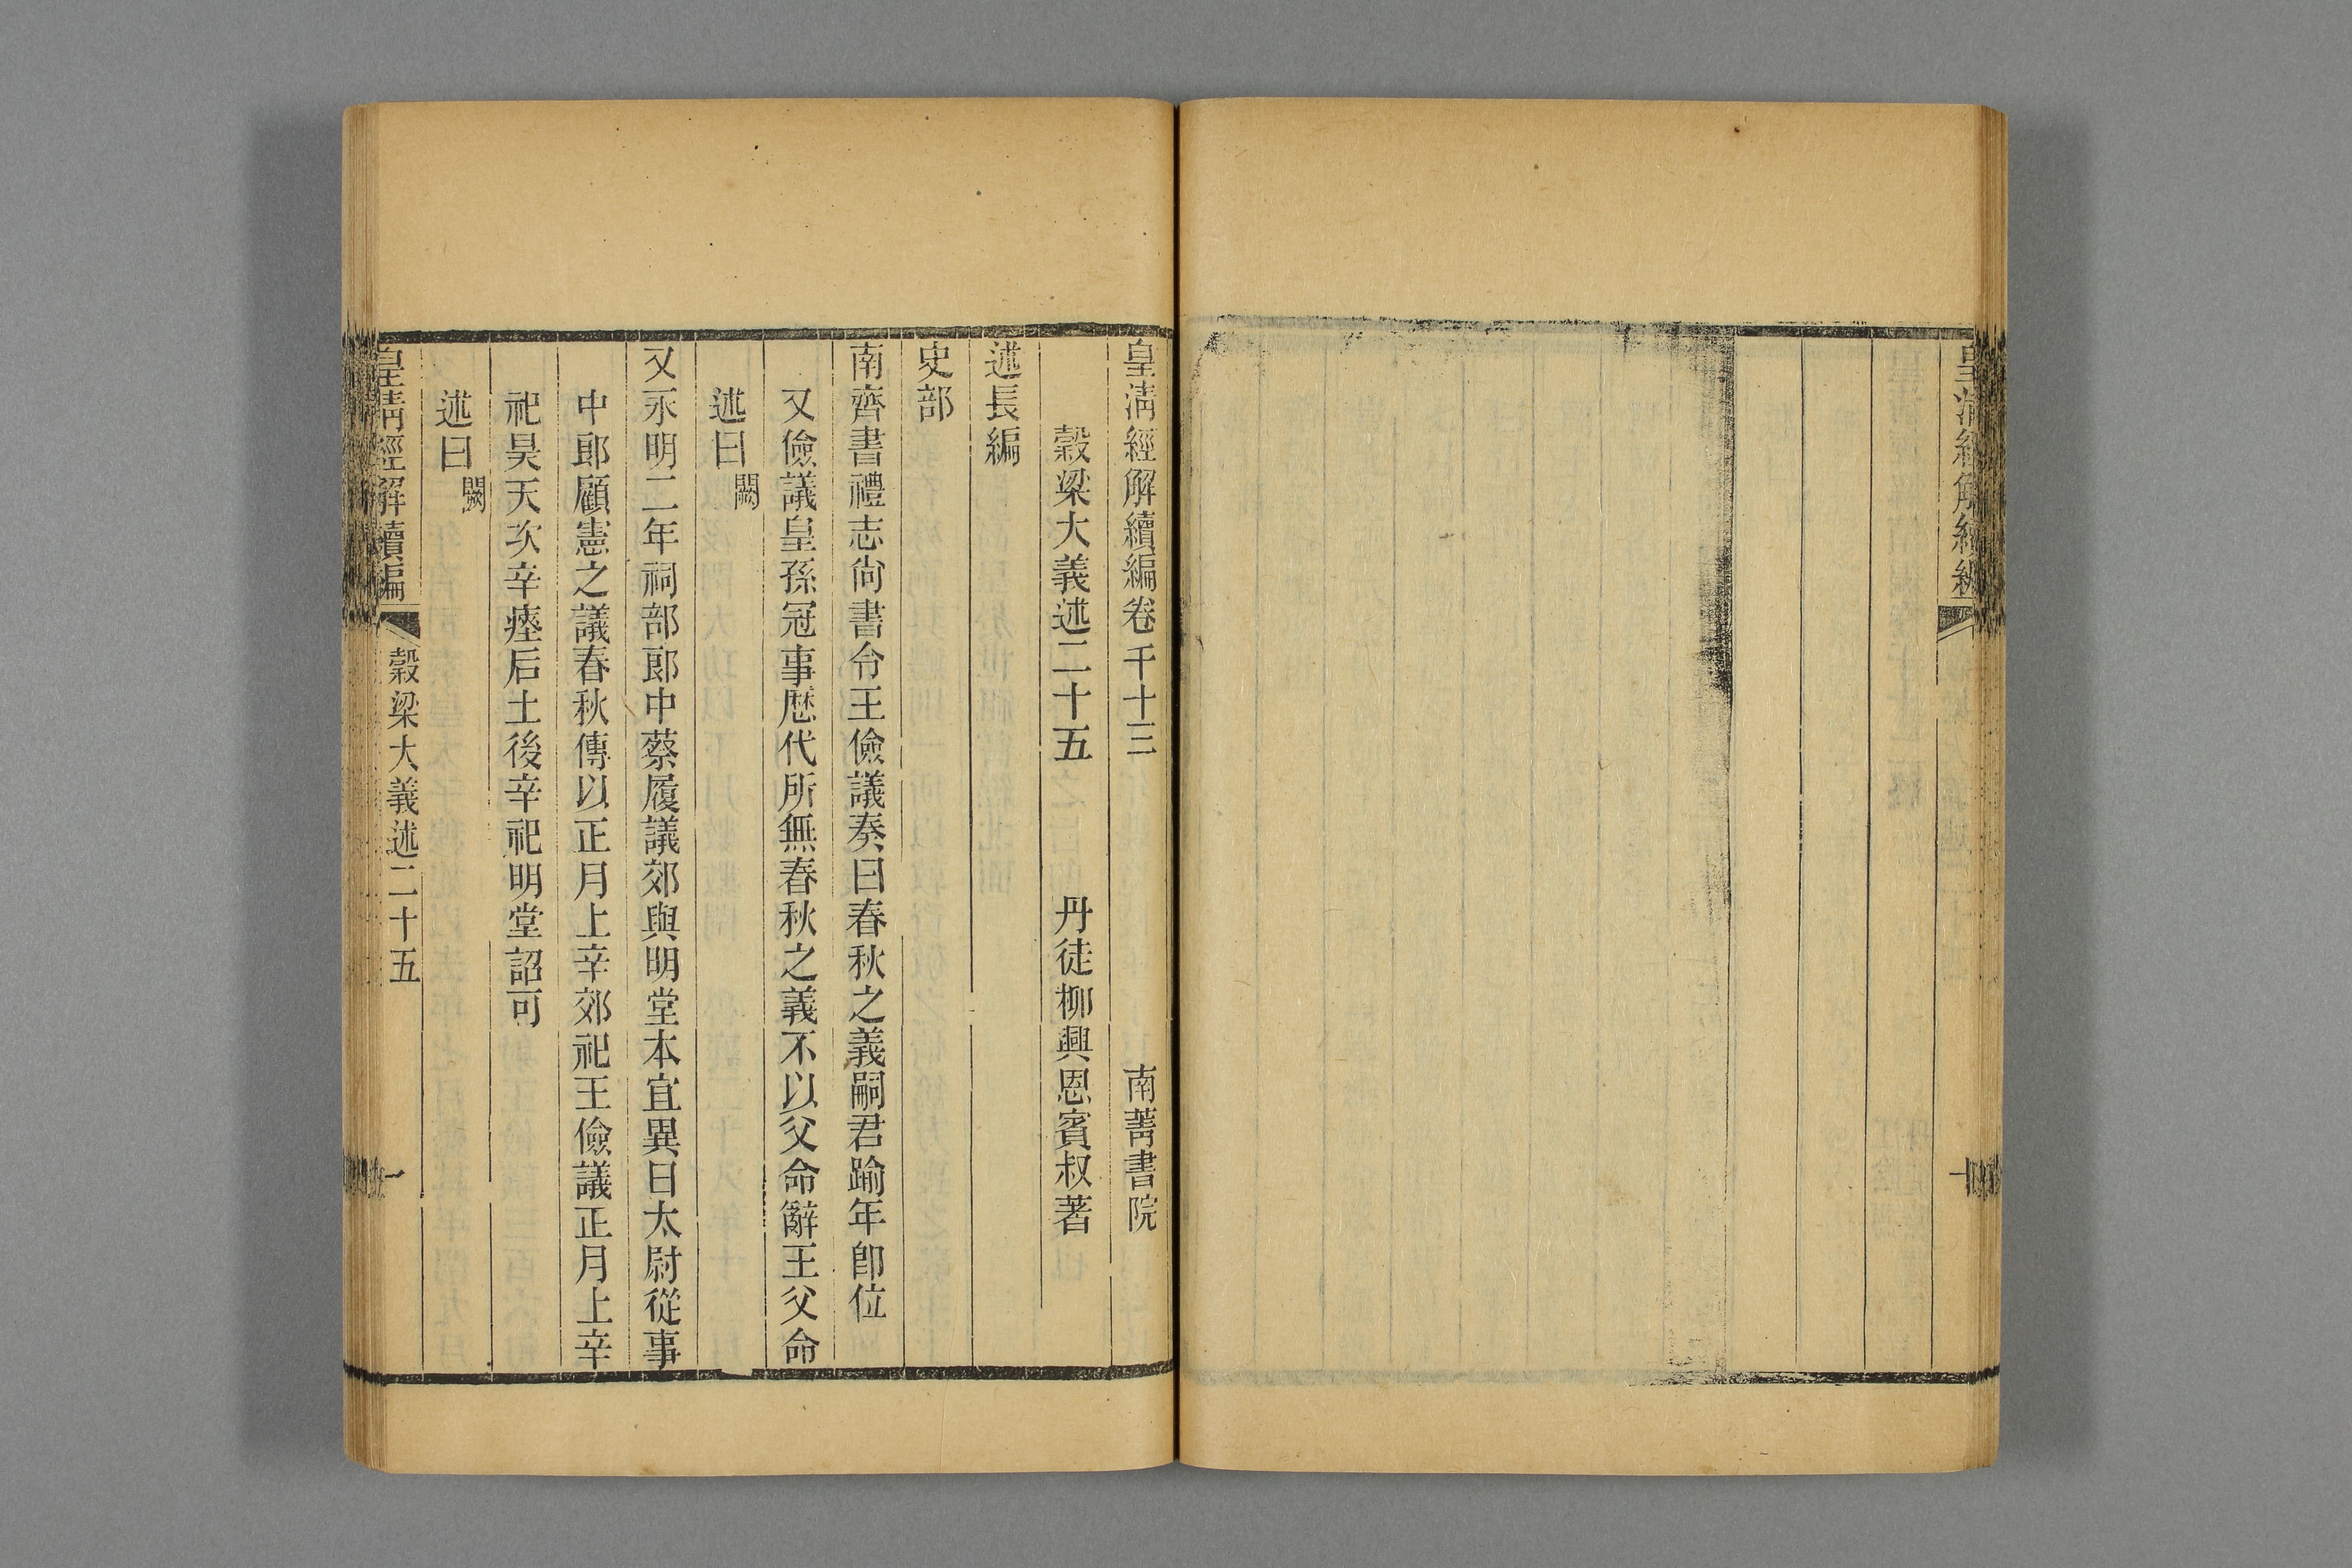 皇清經解續編
皇清經解續編卷千十三 南菁書院
穀梁大義述二十五 丹徒柳興恩賓叔著
述長編
史部
南齊書禮志尚書令王儉議奏曰春秋之義嗣君踰年卽位
又儉議皇孫冠事歷代所無春秋之義不以父命辭王父命
述曰闕
又永明二年祠部郞中蔡履議郊與明堂本宜異日太尉從事
中郞顧憲之議春秋傳以正月上辛郊祀王儉議正月上辛
祀昊天次辛瘞后土後辛祀明堂詔可
述曰闕
皇清經解續編 穀梁大義述二十五 一